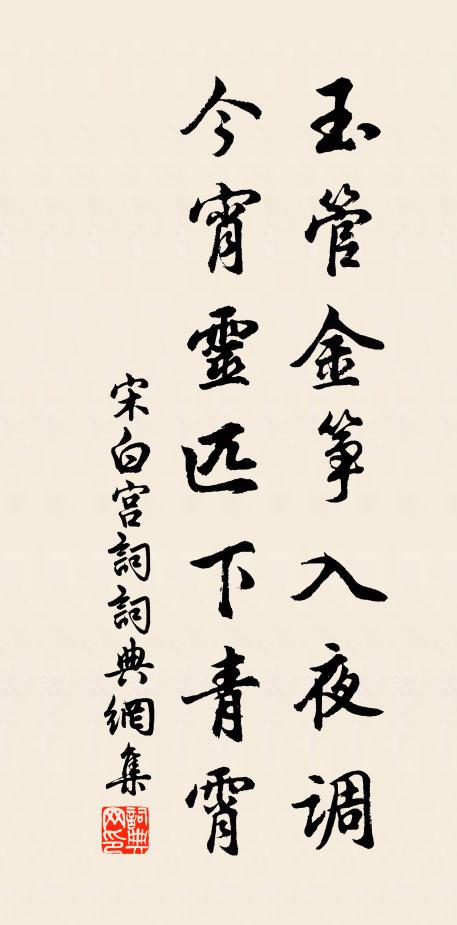 玉管金筝入夜调
今宵靈匹下青霄
宋白宫詞詞典網集
詞典网印